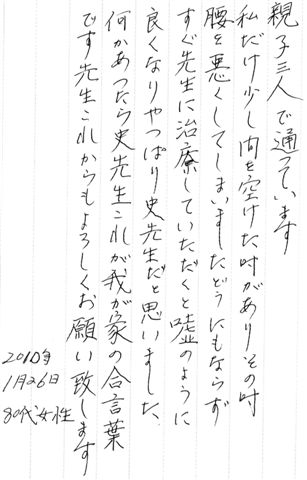 親子三人で通っています
私だけ少し間を空けた時がありその時
腰を悪くしてしまいましたどうにもならず
すぐ先生に治療していただくと嘘のように
良くなりやっぱり史先生だと思いました
何かあったら史先生これが我が家の合言葉
です先生これからもよろしくお願い致します
2010年
1月26日
80代女性